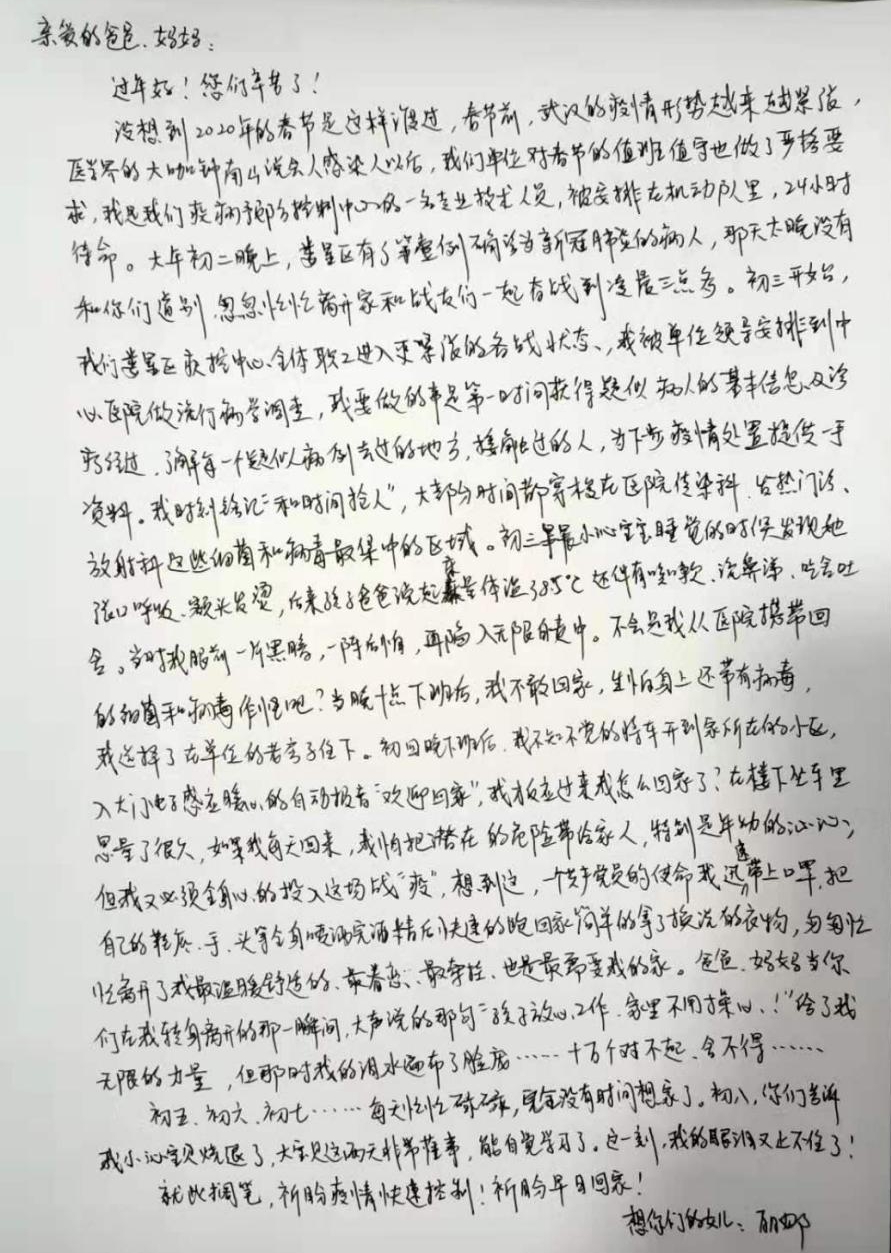 亲爱的爸爸、妈妈：
过年好！您们辛苦了！
没想到2020年的春节是这样渡过，春节前，武汉的疫情形势越来越紧张，
医学界的大咖钟南山说会人感染人以后，我们单位对春节的值班值守也做了严格要
求，我是我们疾病预防控制中心的一名专业技术人员，被安排在机动队里，24小时
待命。大年初二晚上，娄星区有了第壹例确诊为新冠肺炎的病人，那天太晚没有
和你们道别，忽忽忙忙离开家和战友们一起奋战到凌晨三点多。初三开始，
我们娄星区疾控中心全体职工进入更紧张的备战状态，我被单位领导安排到中
心医院做流行病学调查，我要做的事是第一时间获得疑似病人的基本信息及诊
疗经过，了解每一个疑似病例去过的地方，接触过的人，为下步疫情处置提供一手
资料。我时刻铭记“和时间抢人”，大部分时间都穿梭在医院传染科、发热门诊、
放射科这些细菌和病毒最集中的区域。初三早晨小沁宝宝睡觉的时候发现她
张口呼吸、额头发烫，后来孩子爸爸说起床量体温38.5℃还伴有咳嗽、流鼻涕、吃啥吐
啥。当时我眼前一片黑暗，一阵后怕，再陷入无限自责中。不会是我从医院携带回
的细菌和病毒作怪吧？当晚十点下班后，我不敢回家，生怕身上还带有病毒，
我选择了在单位的老房子住下。初四晚下班后，我不知不觉的将车开到家所在的小区，
入大门电子感应暖心的自动报音“欢迎回家”，我才反应过来我怎么回家了？在楼下坐车里
思量了很久，如果我每天回来，我怕把潜在的危险带给家人，特别是年幼的沁沁，
但我又必须全身心的投入这场战“疫”，想到这，一个共产党员的使命我迅速带上口罩，把
自己的鞋底、手、头等全身喷洒完酒精后快速的跑回家简单的拿了换洗的衣物，匆匆忙
忙离开了我最温暖舒适的、最眷恋、最牵挂、也是最需要我的家。爸爸、妈妈当你
们在我转身离开的那一瞬间，大声说的那句“孩子放心工作，家里不用操心！”给了我
无限的力量，但那时我的泪水遍布了脸庞……十万个对不起、舍不得……
初五、初六、初七……每天忙忙碌碌，完全没有时间想家了。初八，你们告诉
我小沁宝贝烧退了，大宝贝这两天非常懂事，能自觉学习了。这一刻，我的眼泪又止不住了！
就此搁笔，祈盼疫情快速控制！祈盼早日回家！
想你们的女儿：丽娜